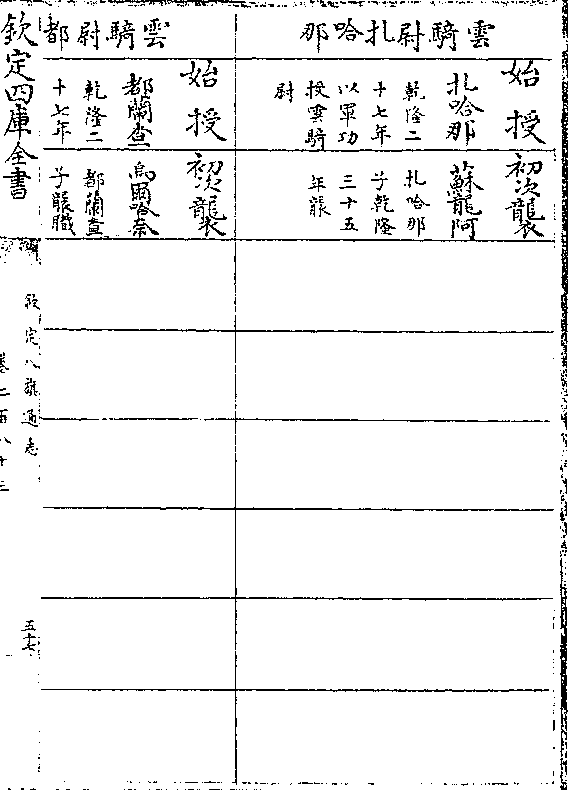 雲騎尉扎哈那
始授
扎哈那
乾隆二
十七年
以軍功
授雲騎
尉
初次襲
蘇龍阿
扎哈那
子乾隆
三十五
年襲
雲騎尉都
始授
都蘭查
乾隆二
十七年
初次襲
烏爾哈奈
都蘭查
子襲職
欽定四庫全書
欽定八旗通志
卷二百八十三
五十七